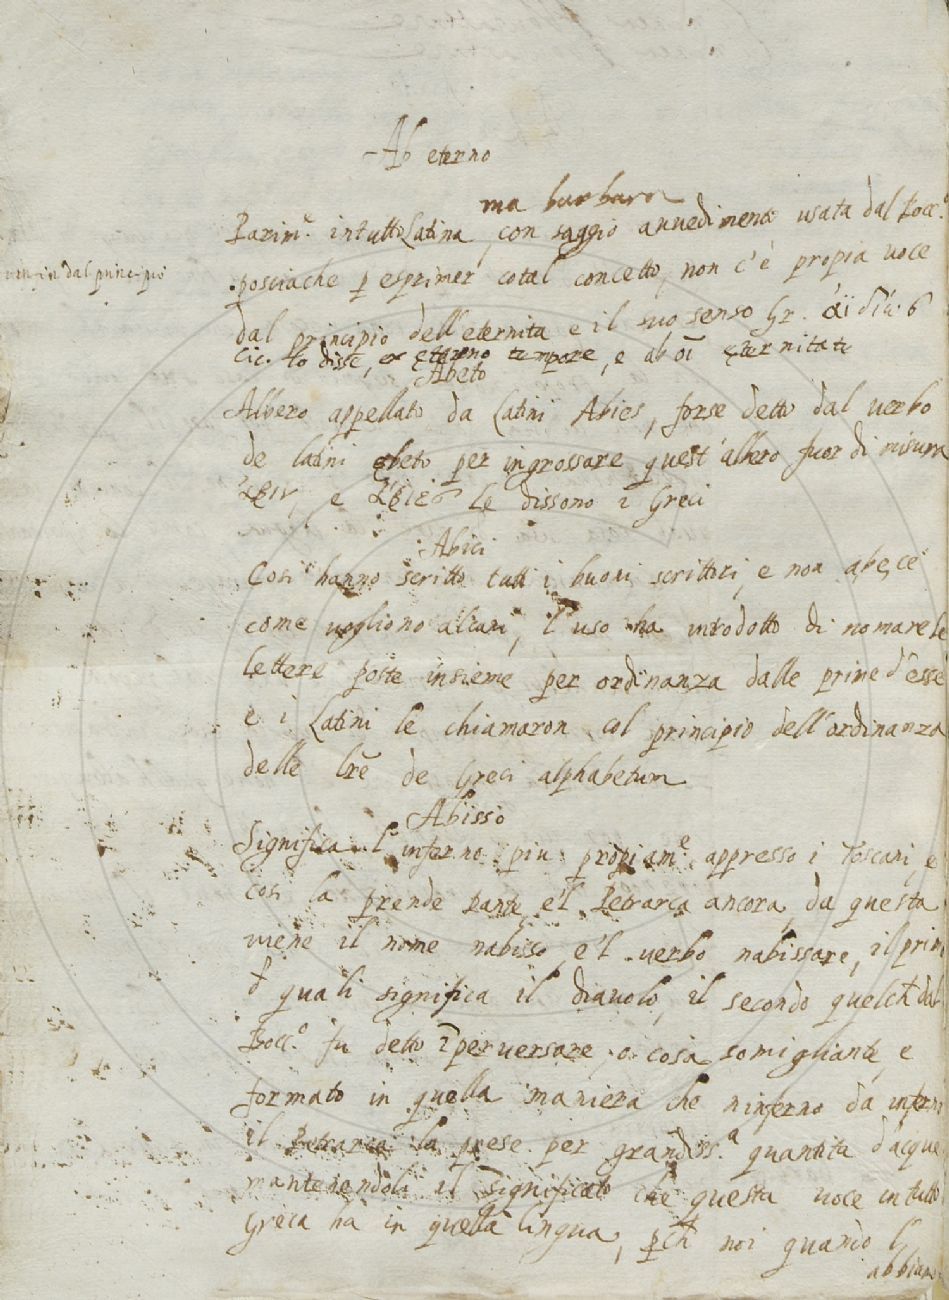 Ab eterno
ma barbara
in tutto Latina, con saggio avvedimento usata dal Bocc.o
posciache p esprimer cotal concetto, non c'è propia voce
ven-in dal principio
dal principio dell'eternita e il suo senso Gr.
Cic. lo disse, ex eterno tempore, e ab oi eternitate
Abeto
Albero appellato da Latini Abies, forse detto dal verbo
de latini abeto per ingrossare quest'albero fuor di misura
e le dissono i Greci
Abici
Cosi hanno scritto tutti i buoni scrittori, e non abece
come vogliono alcuni, l'uso ha introdotto di nomare le
lettere poste insieme per ordinanza dalle prime d'esse
e i Latini le chiamaron col principio dell'ordinanza
delle lre de Greci alphabetum
Abisso
Significa l'inferno piu propiam.e appresso i Toscani, e
cosi la prende Dante, e'l Petrarca ancora, da questa
viene il nome nabisso, e'l verbo nabissare, il prim
d quali significa il diavolo, il secondo quelch dal
Bocc.o fu detto īperversare o cosa somigliante, e
formato in quella maniera che ninferno da infern
il Petrarca la prese per grandiss.a quantita d'acque
mantenendoli il significato che questa voce in tutto
Greca ha in quella lingua, pch noi quando l
abbiamo